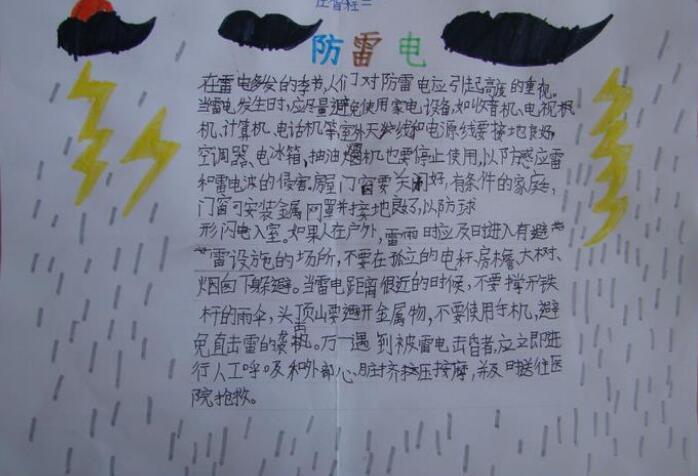 防雷电
在雷电多发的季节,人们对防雷电应引起高度的重视。
当雷电发生时,应尽量避免使用家电设备,如收音机、电视机
机、计算机、电话机等,室外天线和电源线要接地良好,
空调器、电冰箱、抽油烟机也要停止使用,以防感应雷
和雷电波的侵害。房屋门窗要关闭好,有条件的家庭,
门窗可安装金属网罩并接地良好,以防球
形闪电入室。如果人在户外,雷雨时应及时进入有避
雷设施的场所,不要在孤立的电杆、房檐、大树、
烟囱下躲避。当雷电距离很近的时候,不要撑开铁
杆的雨伞,头顶山要避开金属物,不要使用手机,避
免直击雷的袭击。万一遇到被雷电击昏者,应立即进
行人工呼及和外部心脏挤压按摩,并及时送往医
院抢救。